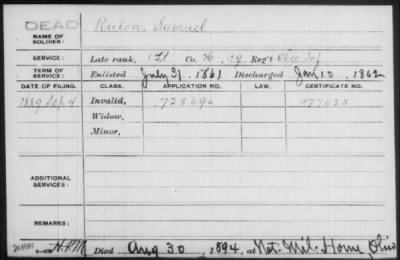 DEAD
NAME OF SOLDIER: Rulon, Samuel
SERVICE: Late rank, 1 Lt Co. K, 39 Reg't Ohio Inf
TERM OF SERVICE: Enlisted July 31, 1861 Discharged Jan 10, 1862
DATE OF FILING. CLASS. APPLICATION NO. LAW. CERTIFICATE NO.
1889 Sep 4 Invalid, 728696 477625
Widow,
Minor,
ADDITIONAL SERVICES:
REMARKS:
Died Aug 30, 1894, at Nat. Mil. Home, Ohio